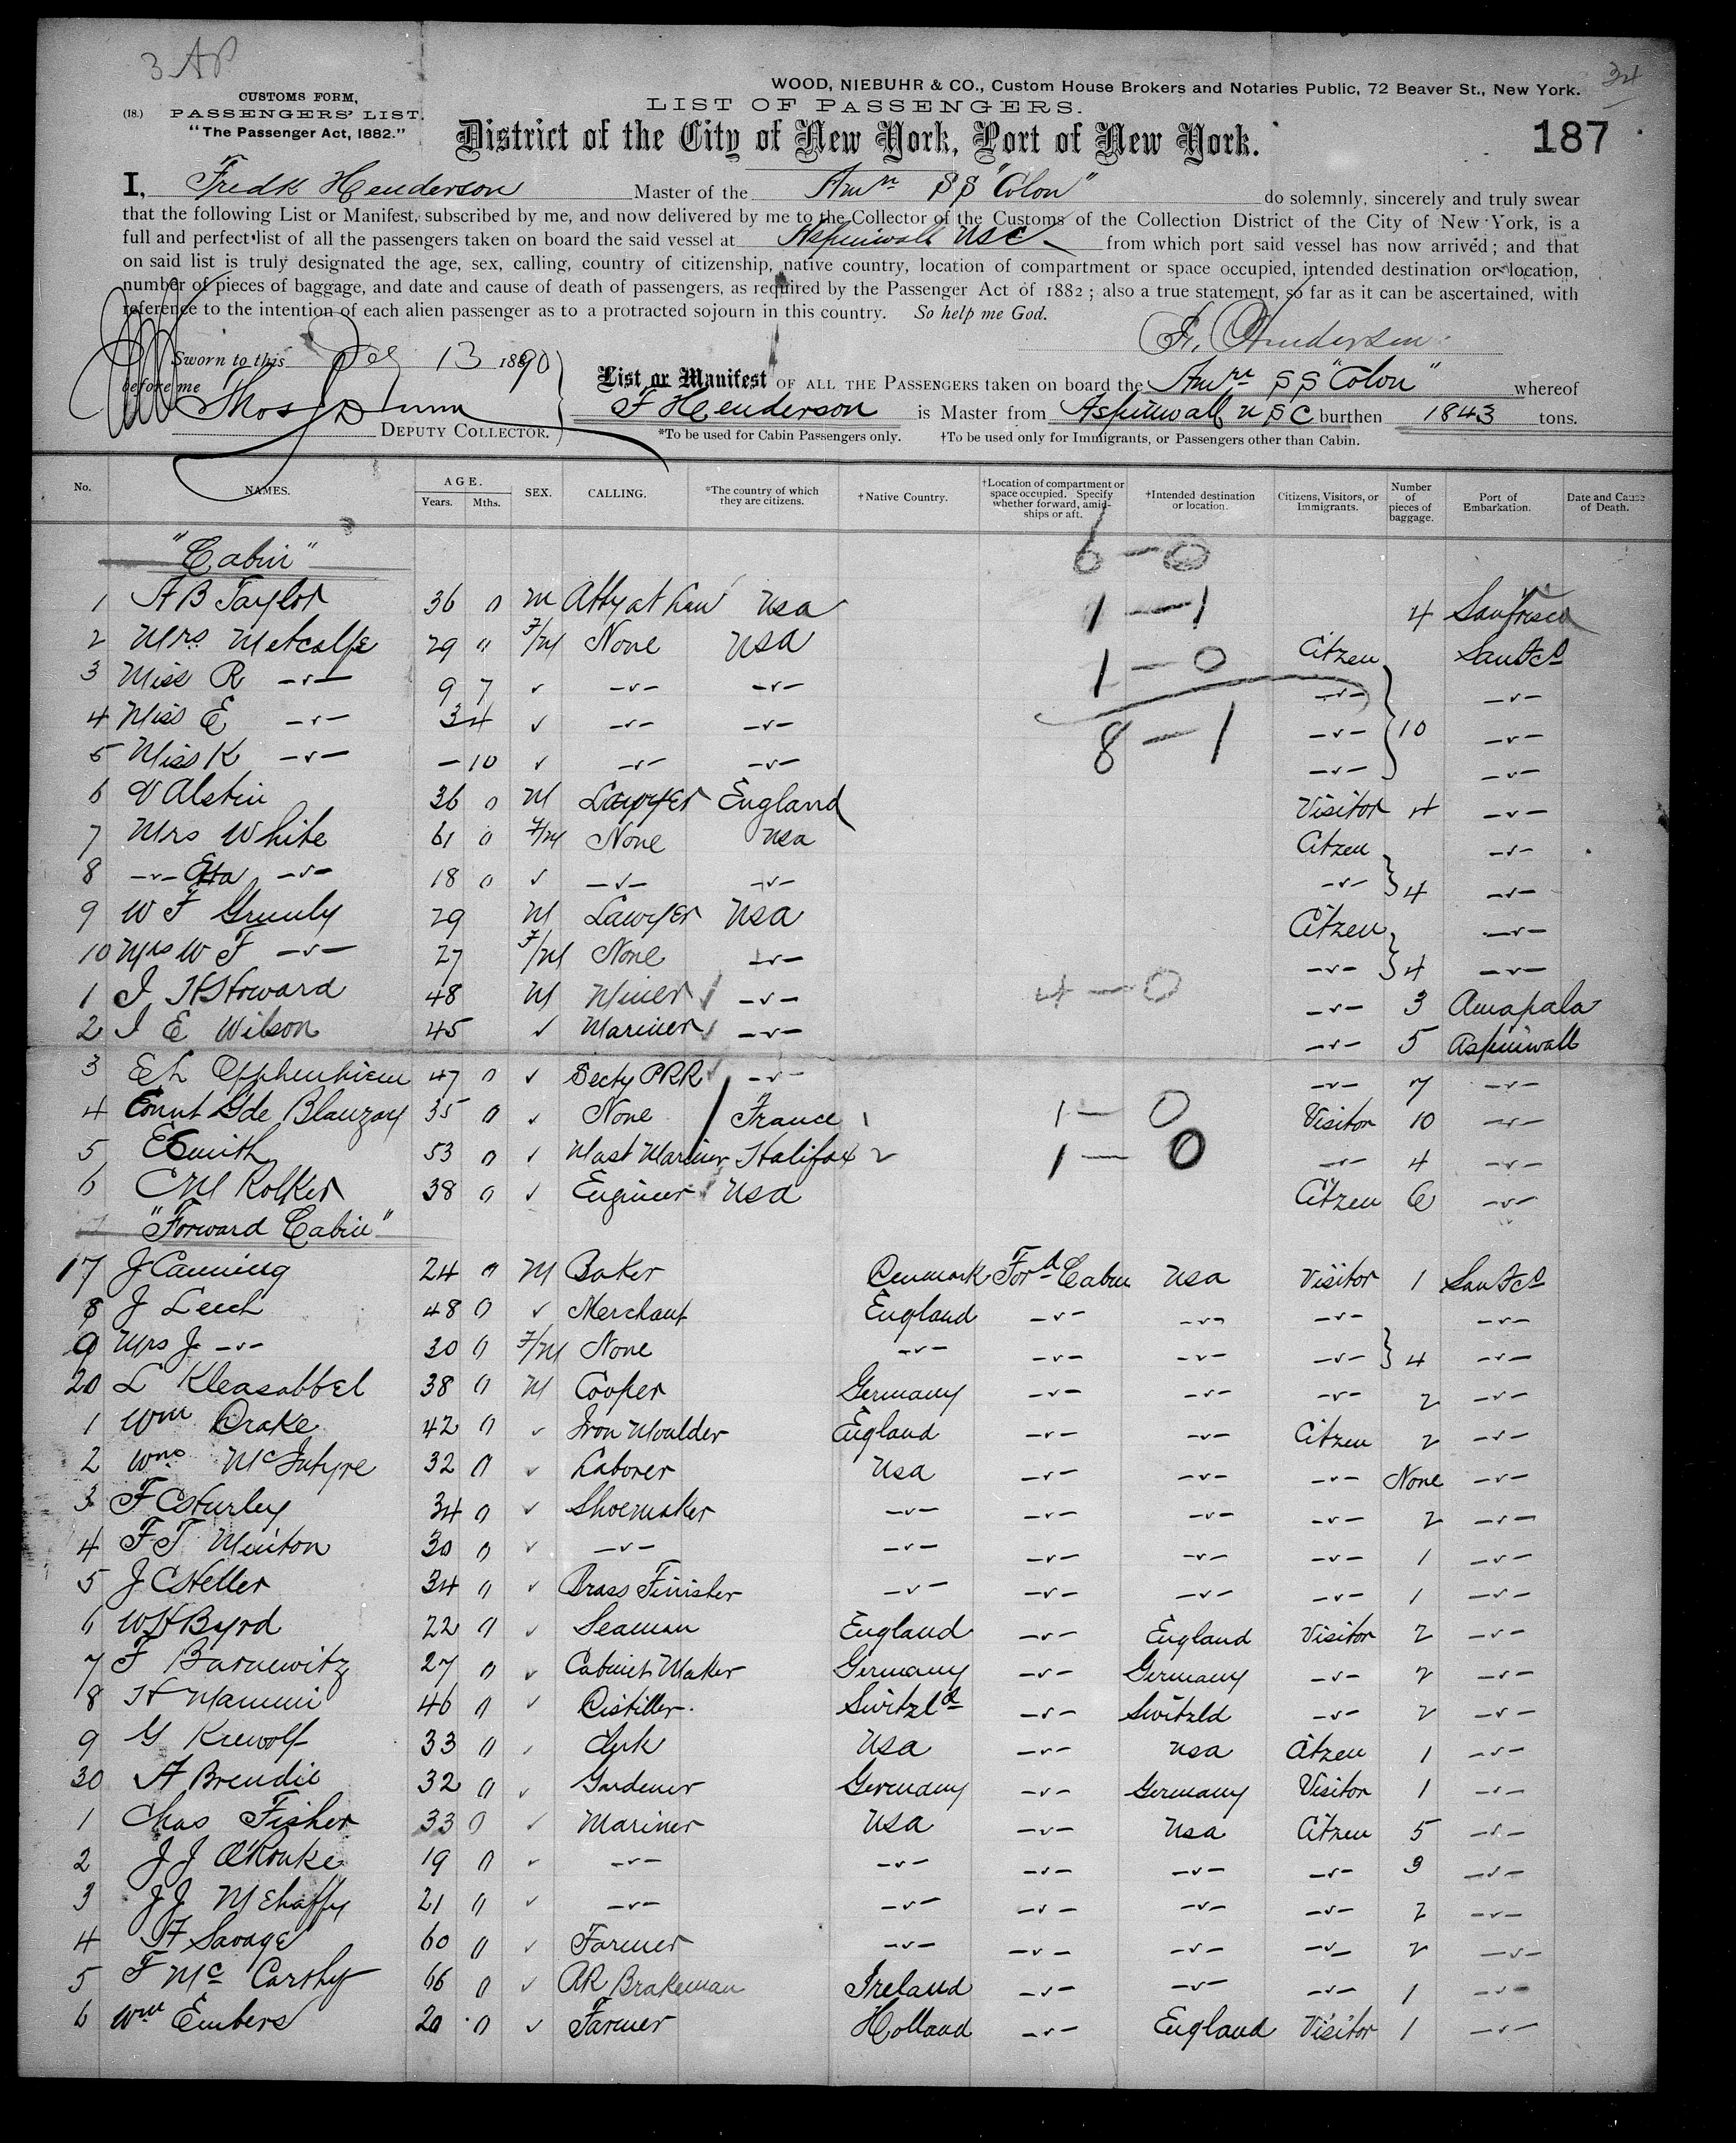 3 AP
34
WOOD, NIEBUHR & CO., Custom House Brokers and Notaries Public, 72 Beaver St., New York.
CUSTOMS FORM,
(18.) PASSENGERS' LIST.
"The Passenger Act, 1882."
LIST OF PASSENGERS.
District of the City of New York, Port of New York.
187
I, Fredk Henderson Master of the Amn SS "Colon" do solemnly, sincerely and truly swear
that the following List or Manifest, subscribed by me, and now delivered by me to the Collector of the Customs of the Collection District of the City of New York, is a
full and perfect list of all the passengers taken on board the said vessel at Aspinwall USC from which port said vessel has now arrived; and that
on said list is truly designated the age, sex, calling, country of citizenship, native country, location of compartment or space occupied, intended destination or location,
number of pieces of baggage, and date and cause of death of passengers, as required by the Passenger Act of 1882; also a true statement, so far as it can be ascertained, with
reference to the intention of each alien passenger as to a protracted sojourn in this country. So help me God.
F. Henderson
Sworn to this 13 1890
before me
Thos J Dunn
DEPUTY COLLECTOR.
List or Manifest OF ALL THE PASSENGERS taken on board the Amn SS "Colon" whereof
F Henderson is Master from Aspinwall USC burthen 1843 tons.
*To be used for Cabin Passengers only. †To be used only for Immigrants, or Passengers other than Cabin.
No. NAMES. AGE. Years. Mths. SEX. CALLING. *The country of which they are citizens. †Native Country. †Location of compartment or space occupied. Specify whether forward, amidships or aft. †Intended destination or location. Citizens, Visitors, or Immigrants. Number of pieces of baggage. Port of Embarkation. Date and Cause of Death.
"Cabin" 6 — 0
1 A B Taylor 36 0 M Atty at Law USA 1 — 1 4 San Frisco
2 Mrs Metcalfe 29 " F/M None USA Citzen San Fco
3 Miss R -v- 9 7 ✓ -v- -v- 1 — 0 -v- -v-
4 Miss E -v- 34 ✓ -v- -v- -v- 10 -v-
5 Miss K -v- - 10 ✓ -v- -v- 8 — 1 -v- -v-
6 V Alstin 36 0 M Lawyer England Visitor 4 -v-
7 Mrs White 61 0 F/M None USA Citzen -v-
8 -v- Etta -v- 18 0 ✓ -v- -v- -v- 4 -v-
9 W F Grumly 29 M Lawyer USA Citzen -v-
10 Mrs W F -v- 27 F/M None -v- -v- 4 -v-
1 J H Howard 48 M Miner -v- 4 — 0 -v- 3 Amapala
2 J E Wilson 45 ✓ Mariner -v- -v- 5 Aspinwall
3 E L Opphenhiem 47 0 ✓ Secty PRR -v- -v- 7 -v-
4 Count G de Blanzay 35 0 ✓ None France 1 1 — 0 Visitor 10 -v-
5 E Smith 53 0 ✓ Mast Mariner Halifax 2 1 — 0 -v- 4 -v-
6 C M Rolker 38 0 ✓ Engineer USA Citzen 6 -v-
"Forward Cabin"
17 J Canning 24 0 M Baker Denmark Ford Cabin USA Visitor 1 San Fco
8 J Leech 48 0 ✓ Merchant England -v- -v- -v- -v-
9 Mrs J -v- 30 0 F/M None -v- -v- -v- -v- 4 -v-
20 L Kleasabbel 38 0 M Cooper Germany -v- -v- -v- 2 -v-
1 Wm Drake 42 0 ✓ Iron Moulder England -v- -v- Citzen 2 -v-
2 Wm McIntyre 32 0 ✓ Laborer USA -v- -v- -v- None -v-
3 F C Hurley 34 0 ✓ Shoemaker -v- -v- -v- -v- 2 -v-
4 F T Minton 30 0 ✓ -v- -v- -v- -v- -v- 1 -v-
5 J C Heller 34 0 ✓ Brass Finisher -v- -v- -v- -v- 1 -v-
6 W H Byrd 22 0 ✓ Seaman England -v- England Visitor 2 -v-
7 F Barnewitz 27 0 ✓ Cabinet Maker Germany -v- Germany -v- 2 -v-
8 H Mammi 46 0 ✓ Distiller Switzld -v- Switzld -v- 2 -v-
9 G Krewolf 33 0 ✓ Clerk USA -v- USA Citzen 1 -v-
30 A Brendie 32 0 ✓ Gardener Germany -v- Germany Visitor 1 -v-
1 Chas Fisher 33 0 ✓ Mariner USA -v- USA Citzen 5 -v-
2 J J O'Rouke 19 0 ✓ -v- -v- -v- -v- -v- 3 -v-
3 J J McHaffy 21 0 ✓ -v- -v- -v- -v- -v- 2 -v-
4 H Savage 60 0 ✓ Farmer -v- -v- -v- -v- 2 -v-
5 F Mc Carthy 66 0 ✓ RR Brakeman Ireland -v- -v- -v- 1 -v-
6 Wm Embers 20 0 ✓ Farmer Holland -v- England Visitor 1 -v-